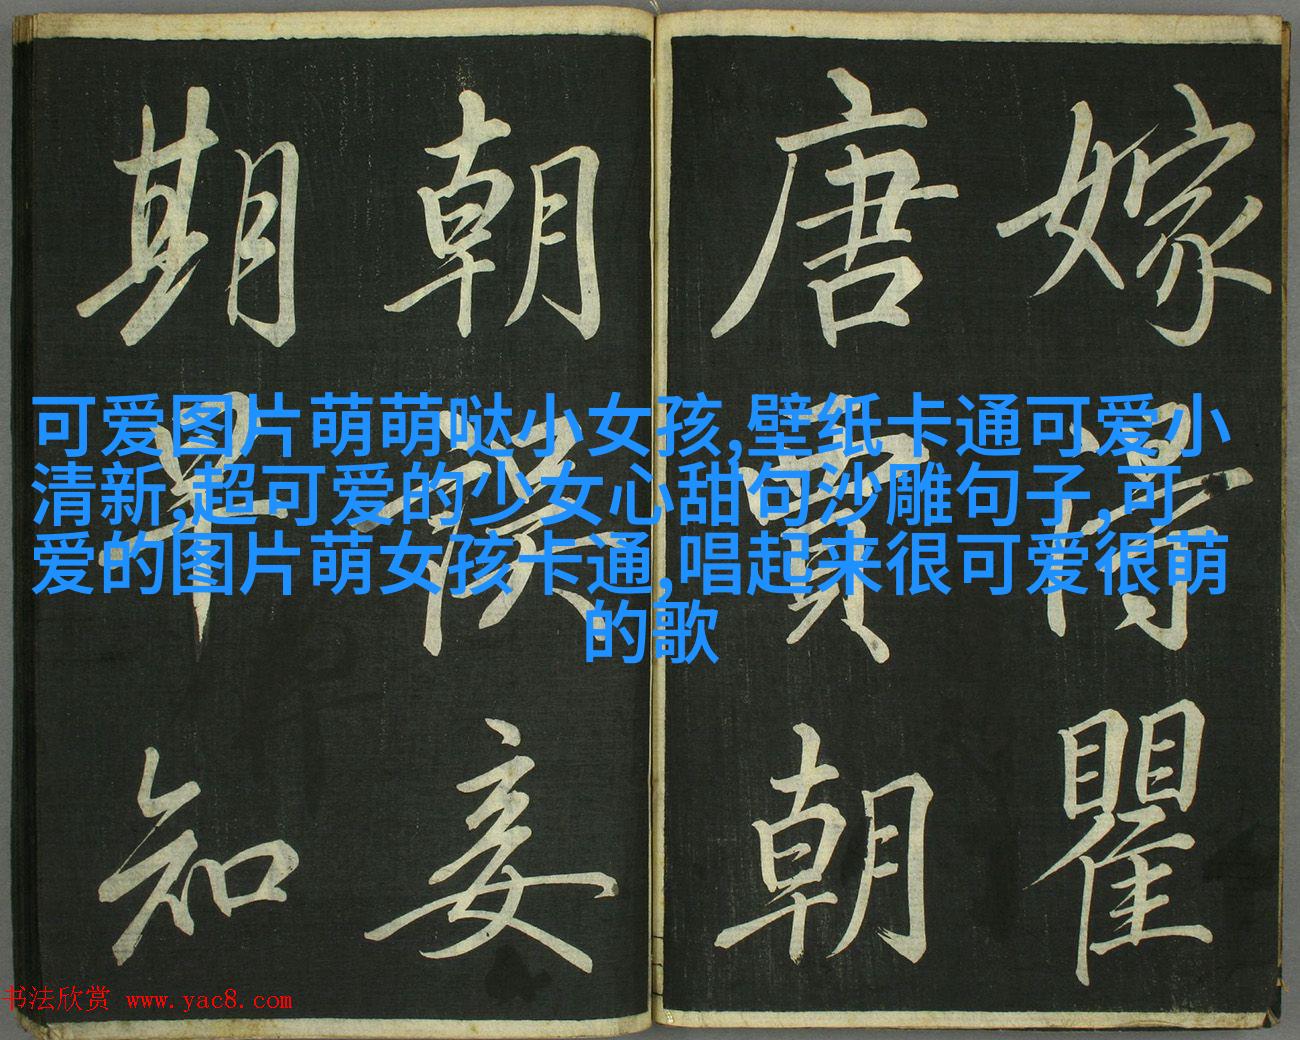 嫁得瞿
唐賈朝
朝誤妾
期早知
可爱图片萌萌哒小女孩,壁纸卡通可爱小
清新,超可爱的少女心甜句沙雕句子,可
爱的图片萌女孩卡通,唱起来很可爱很萌
的歌
书法欣赏 www.yac8.com